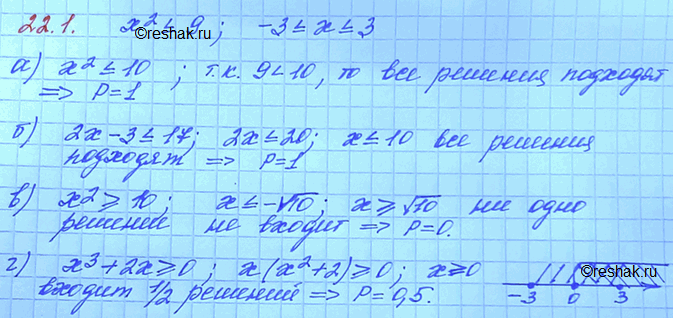 22.1. x² ≤ 9; -3 ≤ x ≤ 3
©reshak.ru
а) x² ≤ 10 ; т.к. 9 < 10, то все решения подходят
=> P=1
б) 2x - 3 ≤ 17; 2x ≤ 20; x ≤ 10 все решения
подходят => P=1
в) x² ≥ 10; x ≤ -√10; x ≥ √10 ни одно
решение не входит => P=0.
г) x³ + 2x ≥ 0; x(x² + 2) ≥ 0; x ≥ 0
входит 1/2 решений => P = 0,5.
-3 0 3
©reshak.ru